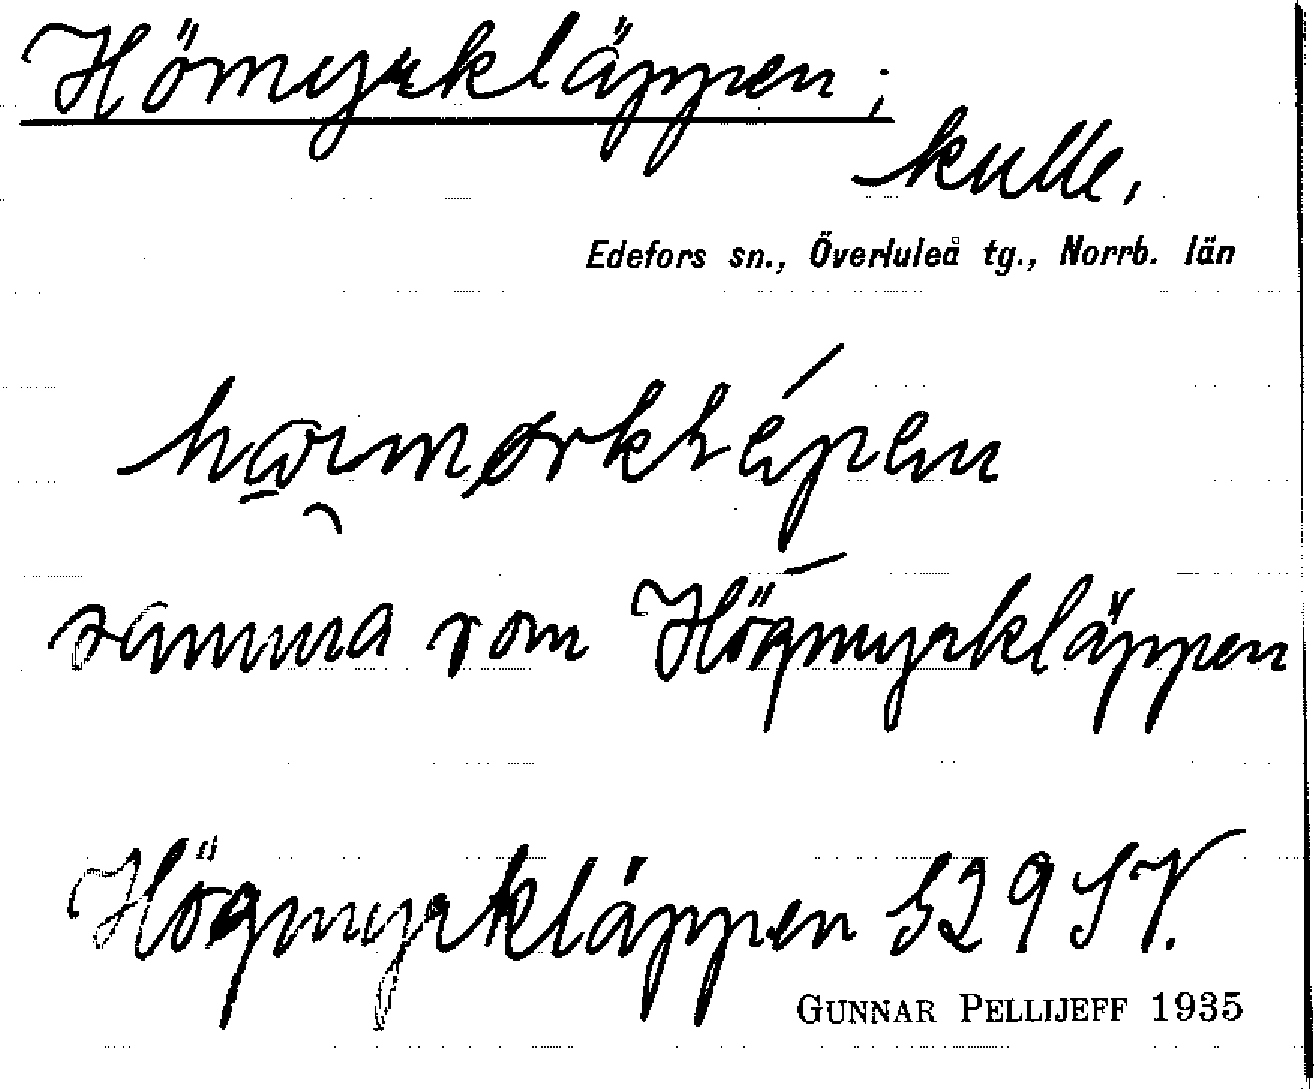 Hömyrkläppen;
kulle,
Edefors sn., Överluleå tg., Norrb. län
samma som Högmyrkläppen
Högmyrkläppen 529 SV.
GUNNAR PELLIJEFF 1935